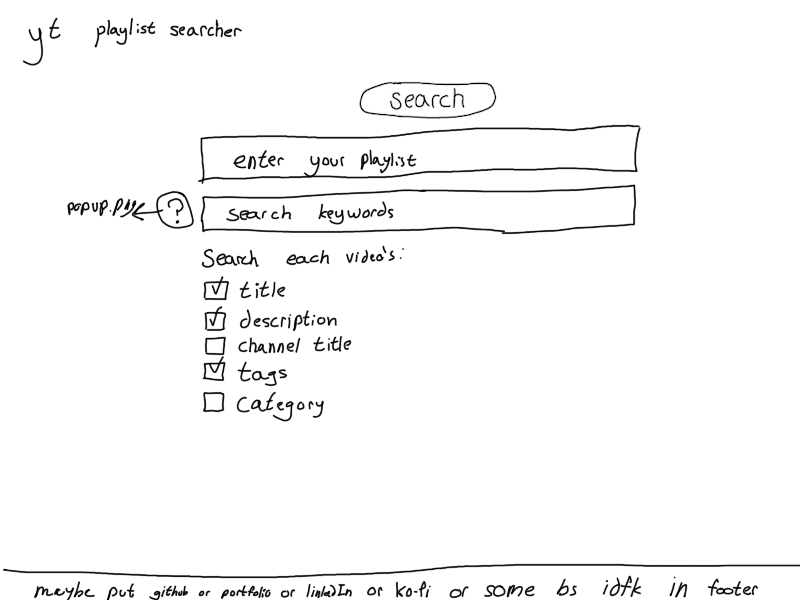 yt playlist searcher
search
enter your playlist
popup.png ?
search keywords
Search each video's:
title
description
channel title
tags
category
maybe put github or portfolio or linkedIn or ko-fi or some bs idfk in footer